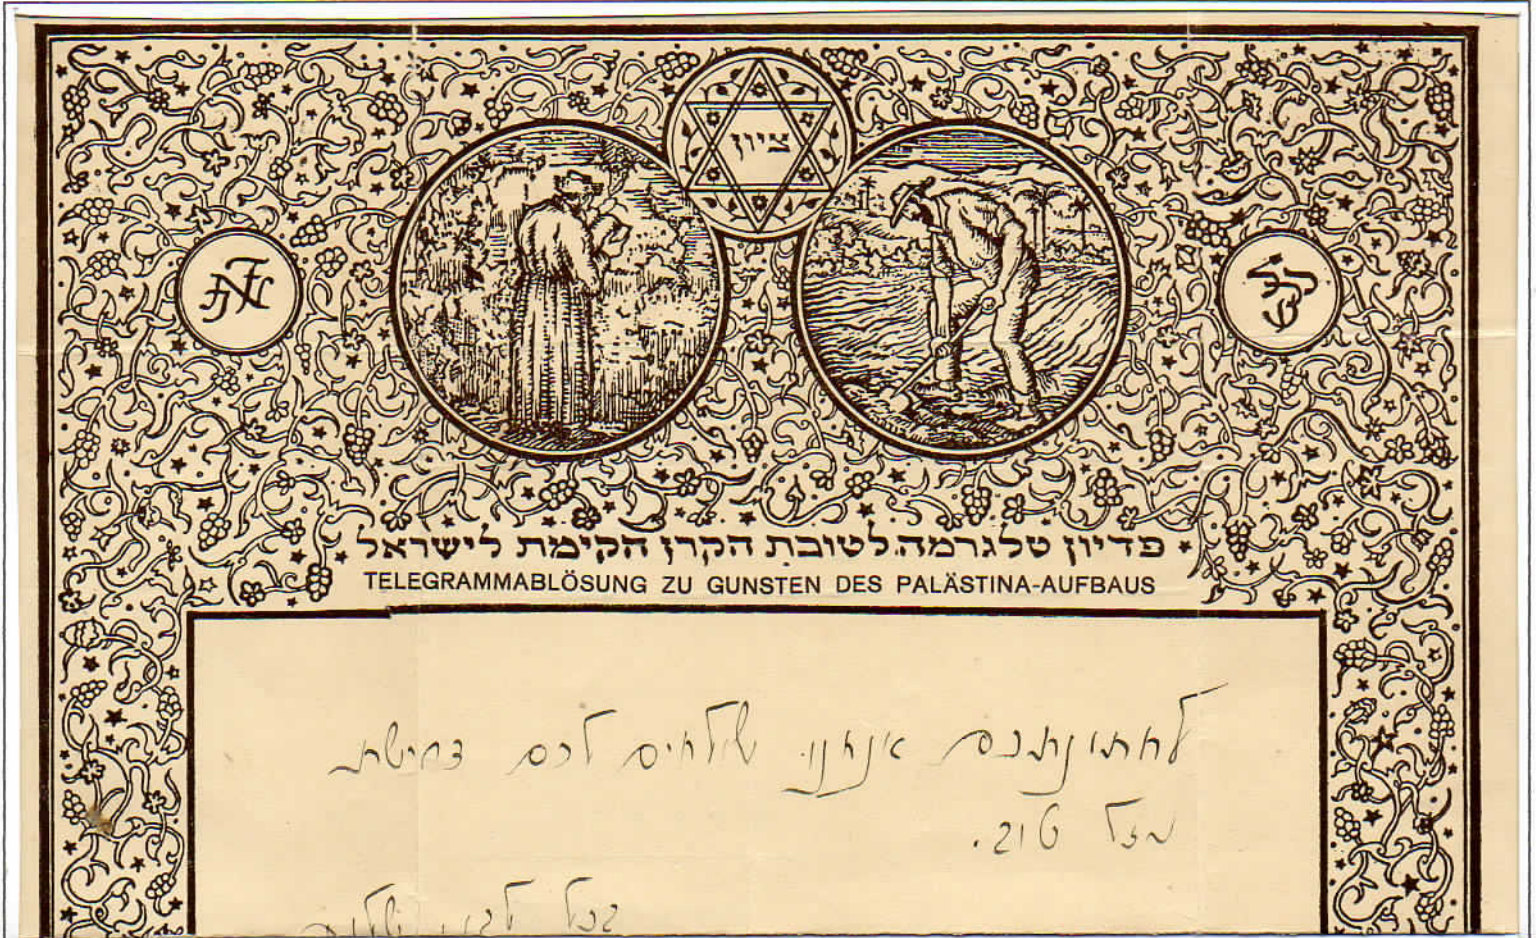 ציון
פדיון טלגרמה לטובת הקרן הקימת לישראל
TELEGRAMMABLÖSUNG ZU GUNSTEN DES PALÄSTINA-AUFBAUS
לחתונתכם אנחנו שולחים לכם דרישת
מזל טוב.